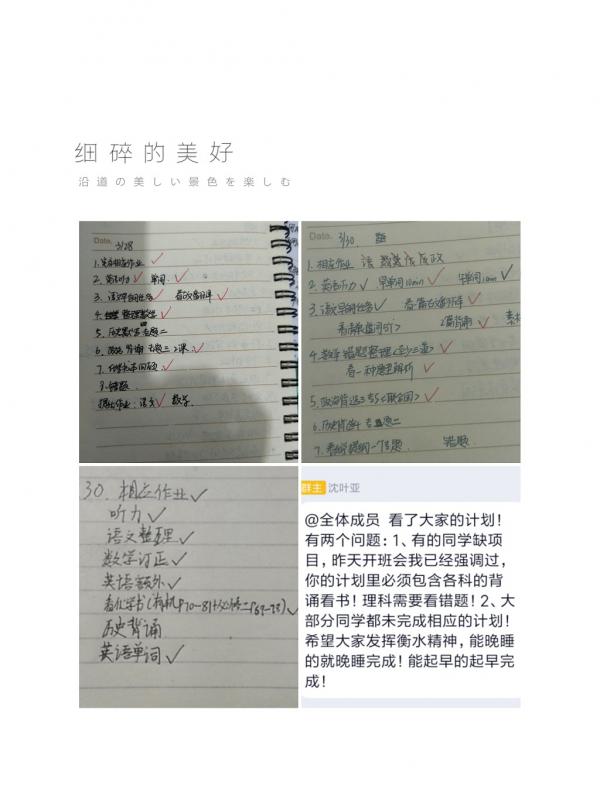 细碎的美好
沿道の美しい景色を楽しむ
Date. 3/28
1.完成相应作业
2.英语听力 单词
3.语文导纲任务
4. 整理数学
5.历史 专题二
6.历史 背诵 专题三2课
8.错题
提纲作业:语文 数学
Date. 3/30
1.相应作业 语 数英 政
2.英语听力 早单词10min 午单词10min
3.语文导纲任务 2篇背诵 素材
4.数学错题整理<至少三道>
看一种 解析
5.政治背选三 <联合国>
6.历史背选 专题二
7. 错题
30. 相应作业
听力
语文整理
数学订正
英语额外
看化学书(有机P70-81+必修二P67-73)
历史背诵
英语单词
群主 沈叶亚
@全体成员 看了大家的计划!
有两个问题:1、有的同学缺项
目,昨天开班会我已经强调过,
你的计划里必须包含各科的背
诵看书!理科需要看错题!2、大
部分同学都未完成相应的计划!
希望大家发挥衡水精神,能晚睡
的就晚睡完成!能起早的起早完
成!